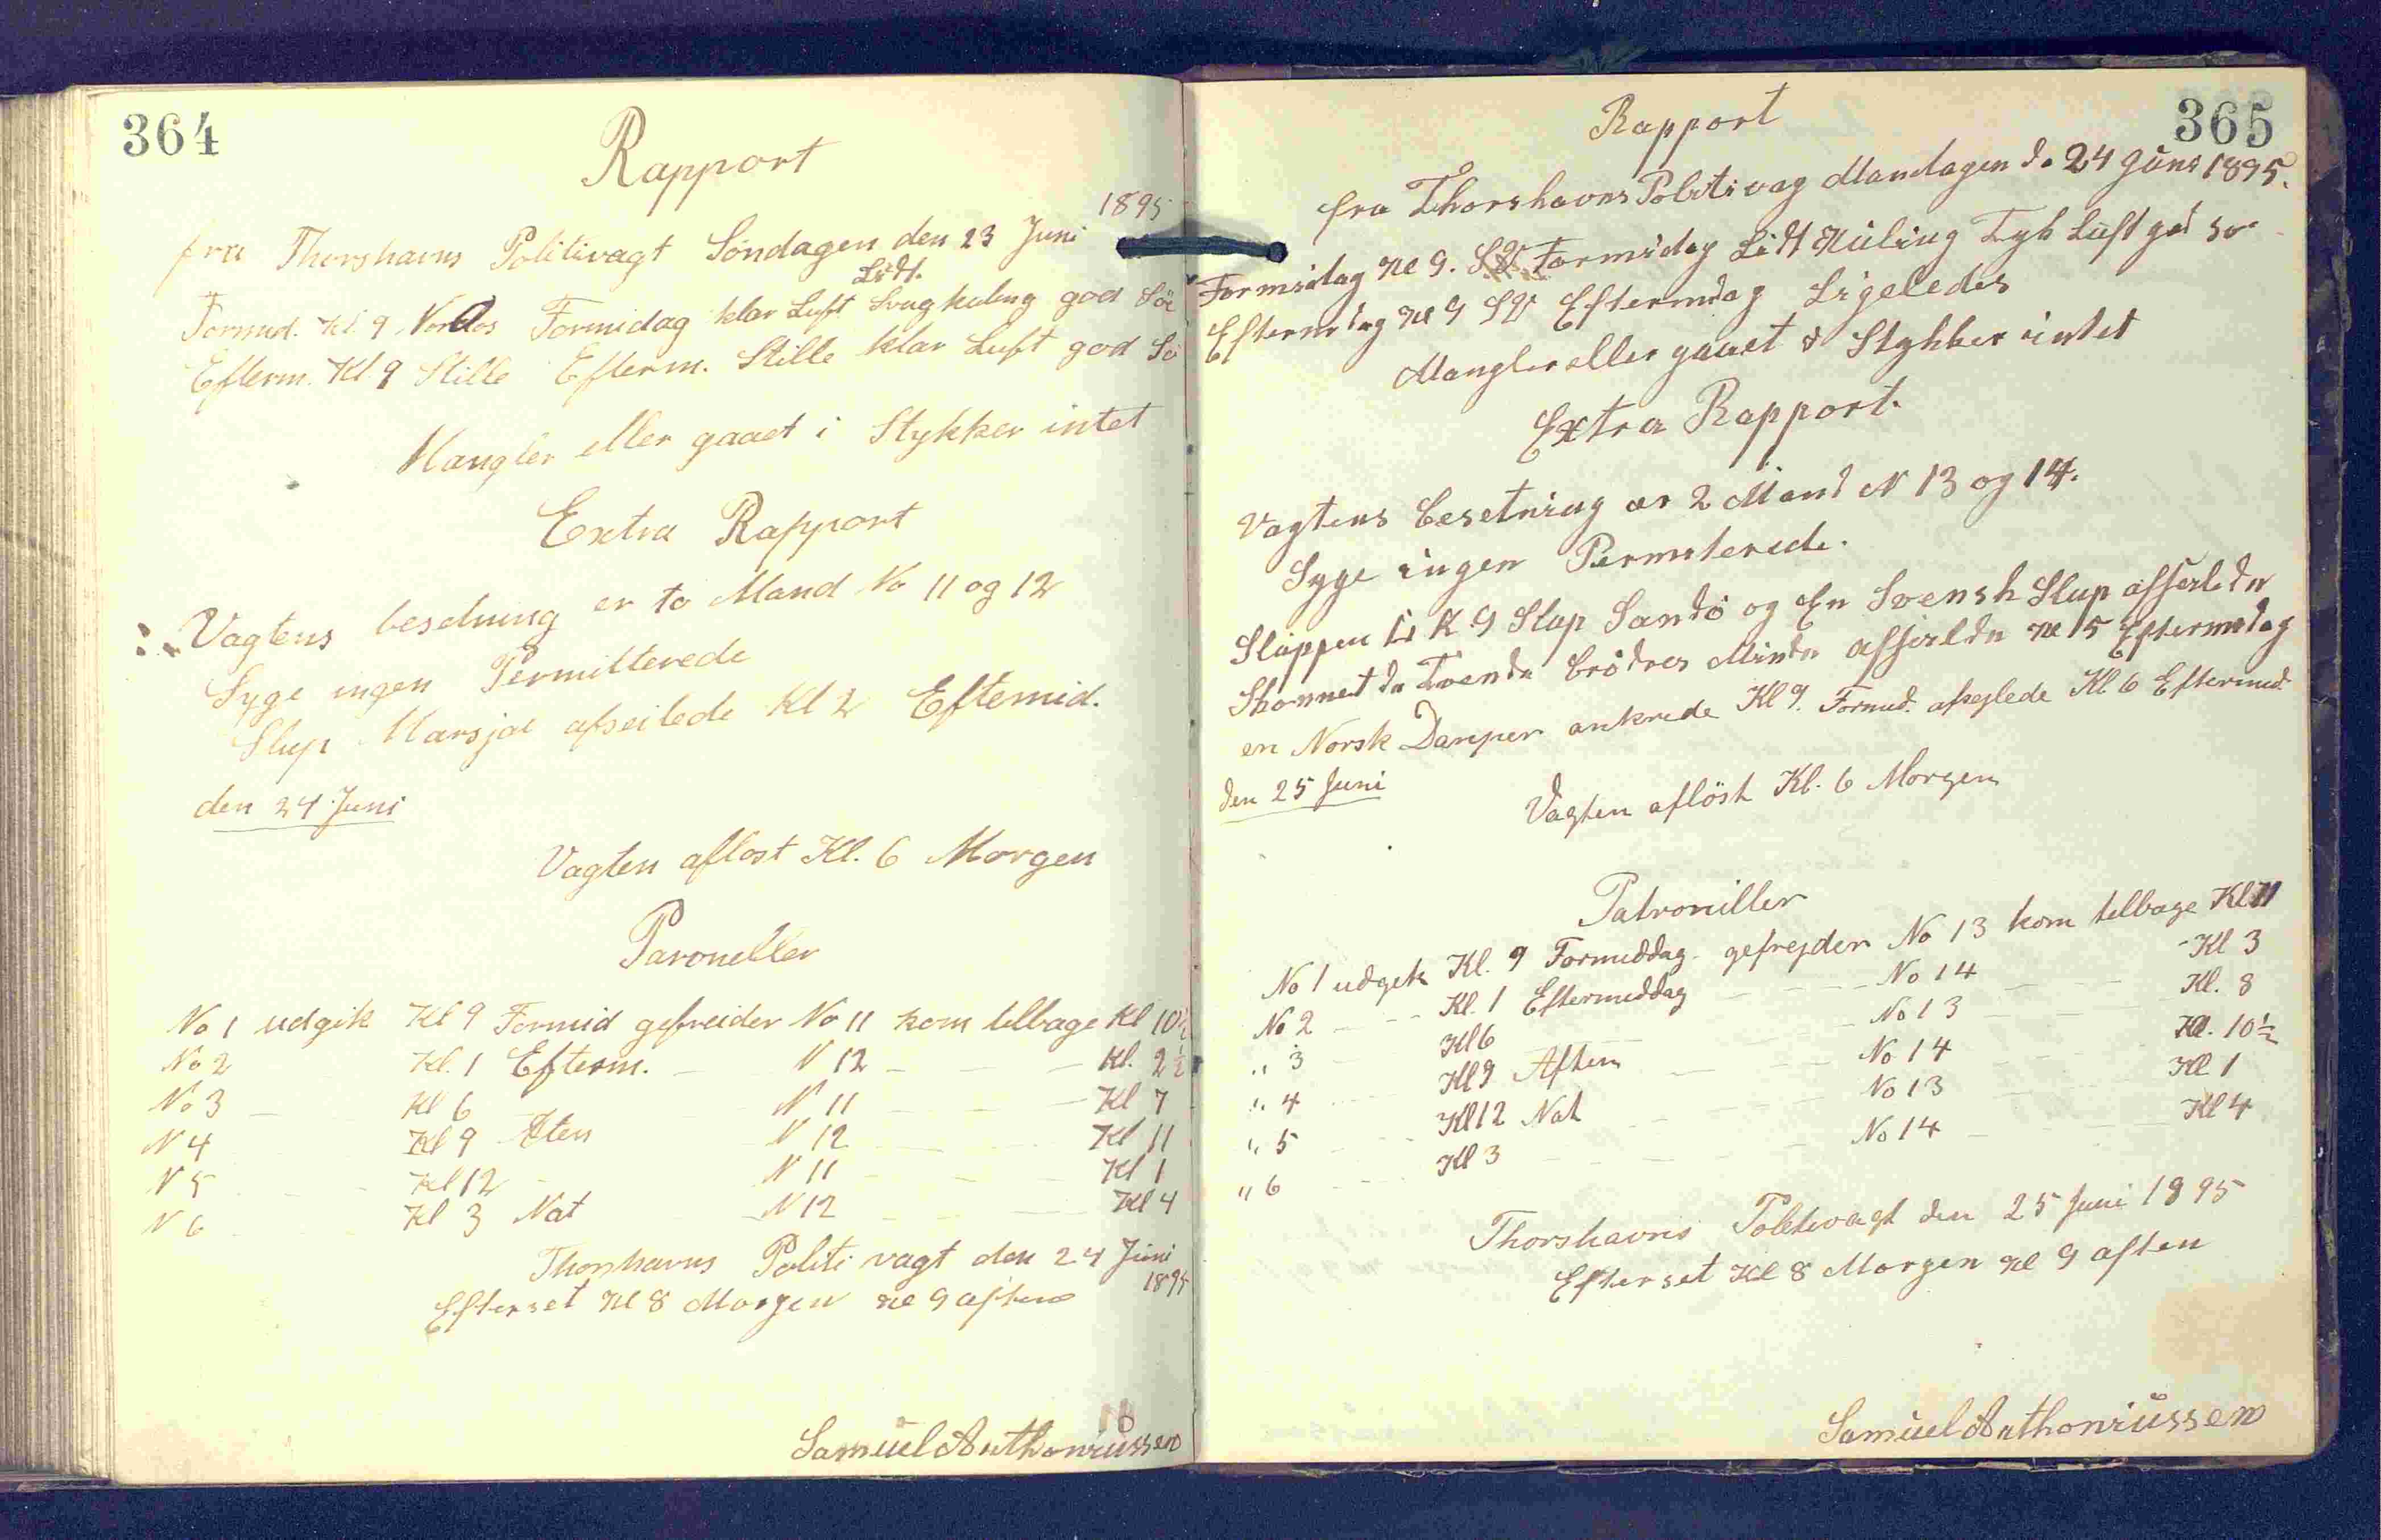 364
Rapport
1895
fra Thorshavns Politivagt Søndagen den 23 Juni
Lidt.
Formid. Kl. 9 Formidag klar Luft Svag kuling god Sö
Efterm. Kl. 9 Stille Efterm. Stille klar Luft god Sö
Mangler eller gaaet i Stykker intet
Extra Rapport
Vagtens besetning er to Mand No 11 og 12
Syge ingen Permitterede
Slup afseilede Kl 2 Eftemid.
den 24 Juni
Vagten aflost Kl. 6 Morgen
Paroneller
No 1 udgik Kl 9 Formid gefreider No 11 kom tilbage Kl 10½
No 2 Kl. 1 Efterm. N 12 Kl. 2½
No 3 Kl 6 N 11 Kl 7
N 4 Kl 9 Aften N 12 Kl 11
N 5 Kl 12 N 11 Kl 1
N 6 Kl 3 Nat N 12 Kl 4
Thorshavns Politi vagt den 24 Juni
1895
Efterset Kl 8 Morgen Kl 9 aften
Samuel Anthoniussen
365
Rapport
fra Thorshavns Politivag Mandagen d. 24 Juni 1895.
Formidag Kl 9. SV Formidag Lidt Kuling Tyk Luft god
Eftermidag Kl 9 SV Eftermidag Ligeledes
Mangler eller gaaet i Stykker intet
Extra Rapport.
Vagtens Besetning er 2 Mand N 13 og 14.
Syge ingen Permiterede.
Sluppen Slup Sandö og En Svensk Slup afseilede
Skonnert Brödres Minde afseilede Kl 5 Eftermidag
en Norsk Damper ankrede Kl 9. Formid. afseglede Kl 6 Eftermid.
den 25 Juni
Vagten aflöst Kl. 6 Morgen
Patroniller
No 1 udgik Kl. 9 Formiddag gefrejder No 13 kom tilbage Kl 11
No 2 Kl. 1 Eftermiddag No 14 Kl 3
" 3 Kl 6 No 13 Kl. 8
" 4 Kl 9 Aften No 14 Kl. 10½
" 5 Kl 12 Nat No 13 Kl 1
" 6 Kl 3 No 14 Kl 4
Thorshavns Politivagt den 25 Juni 1895
Efterset Kl 8 Morgen Kl 9 aften
Samuel Anthoniussen